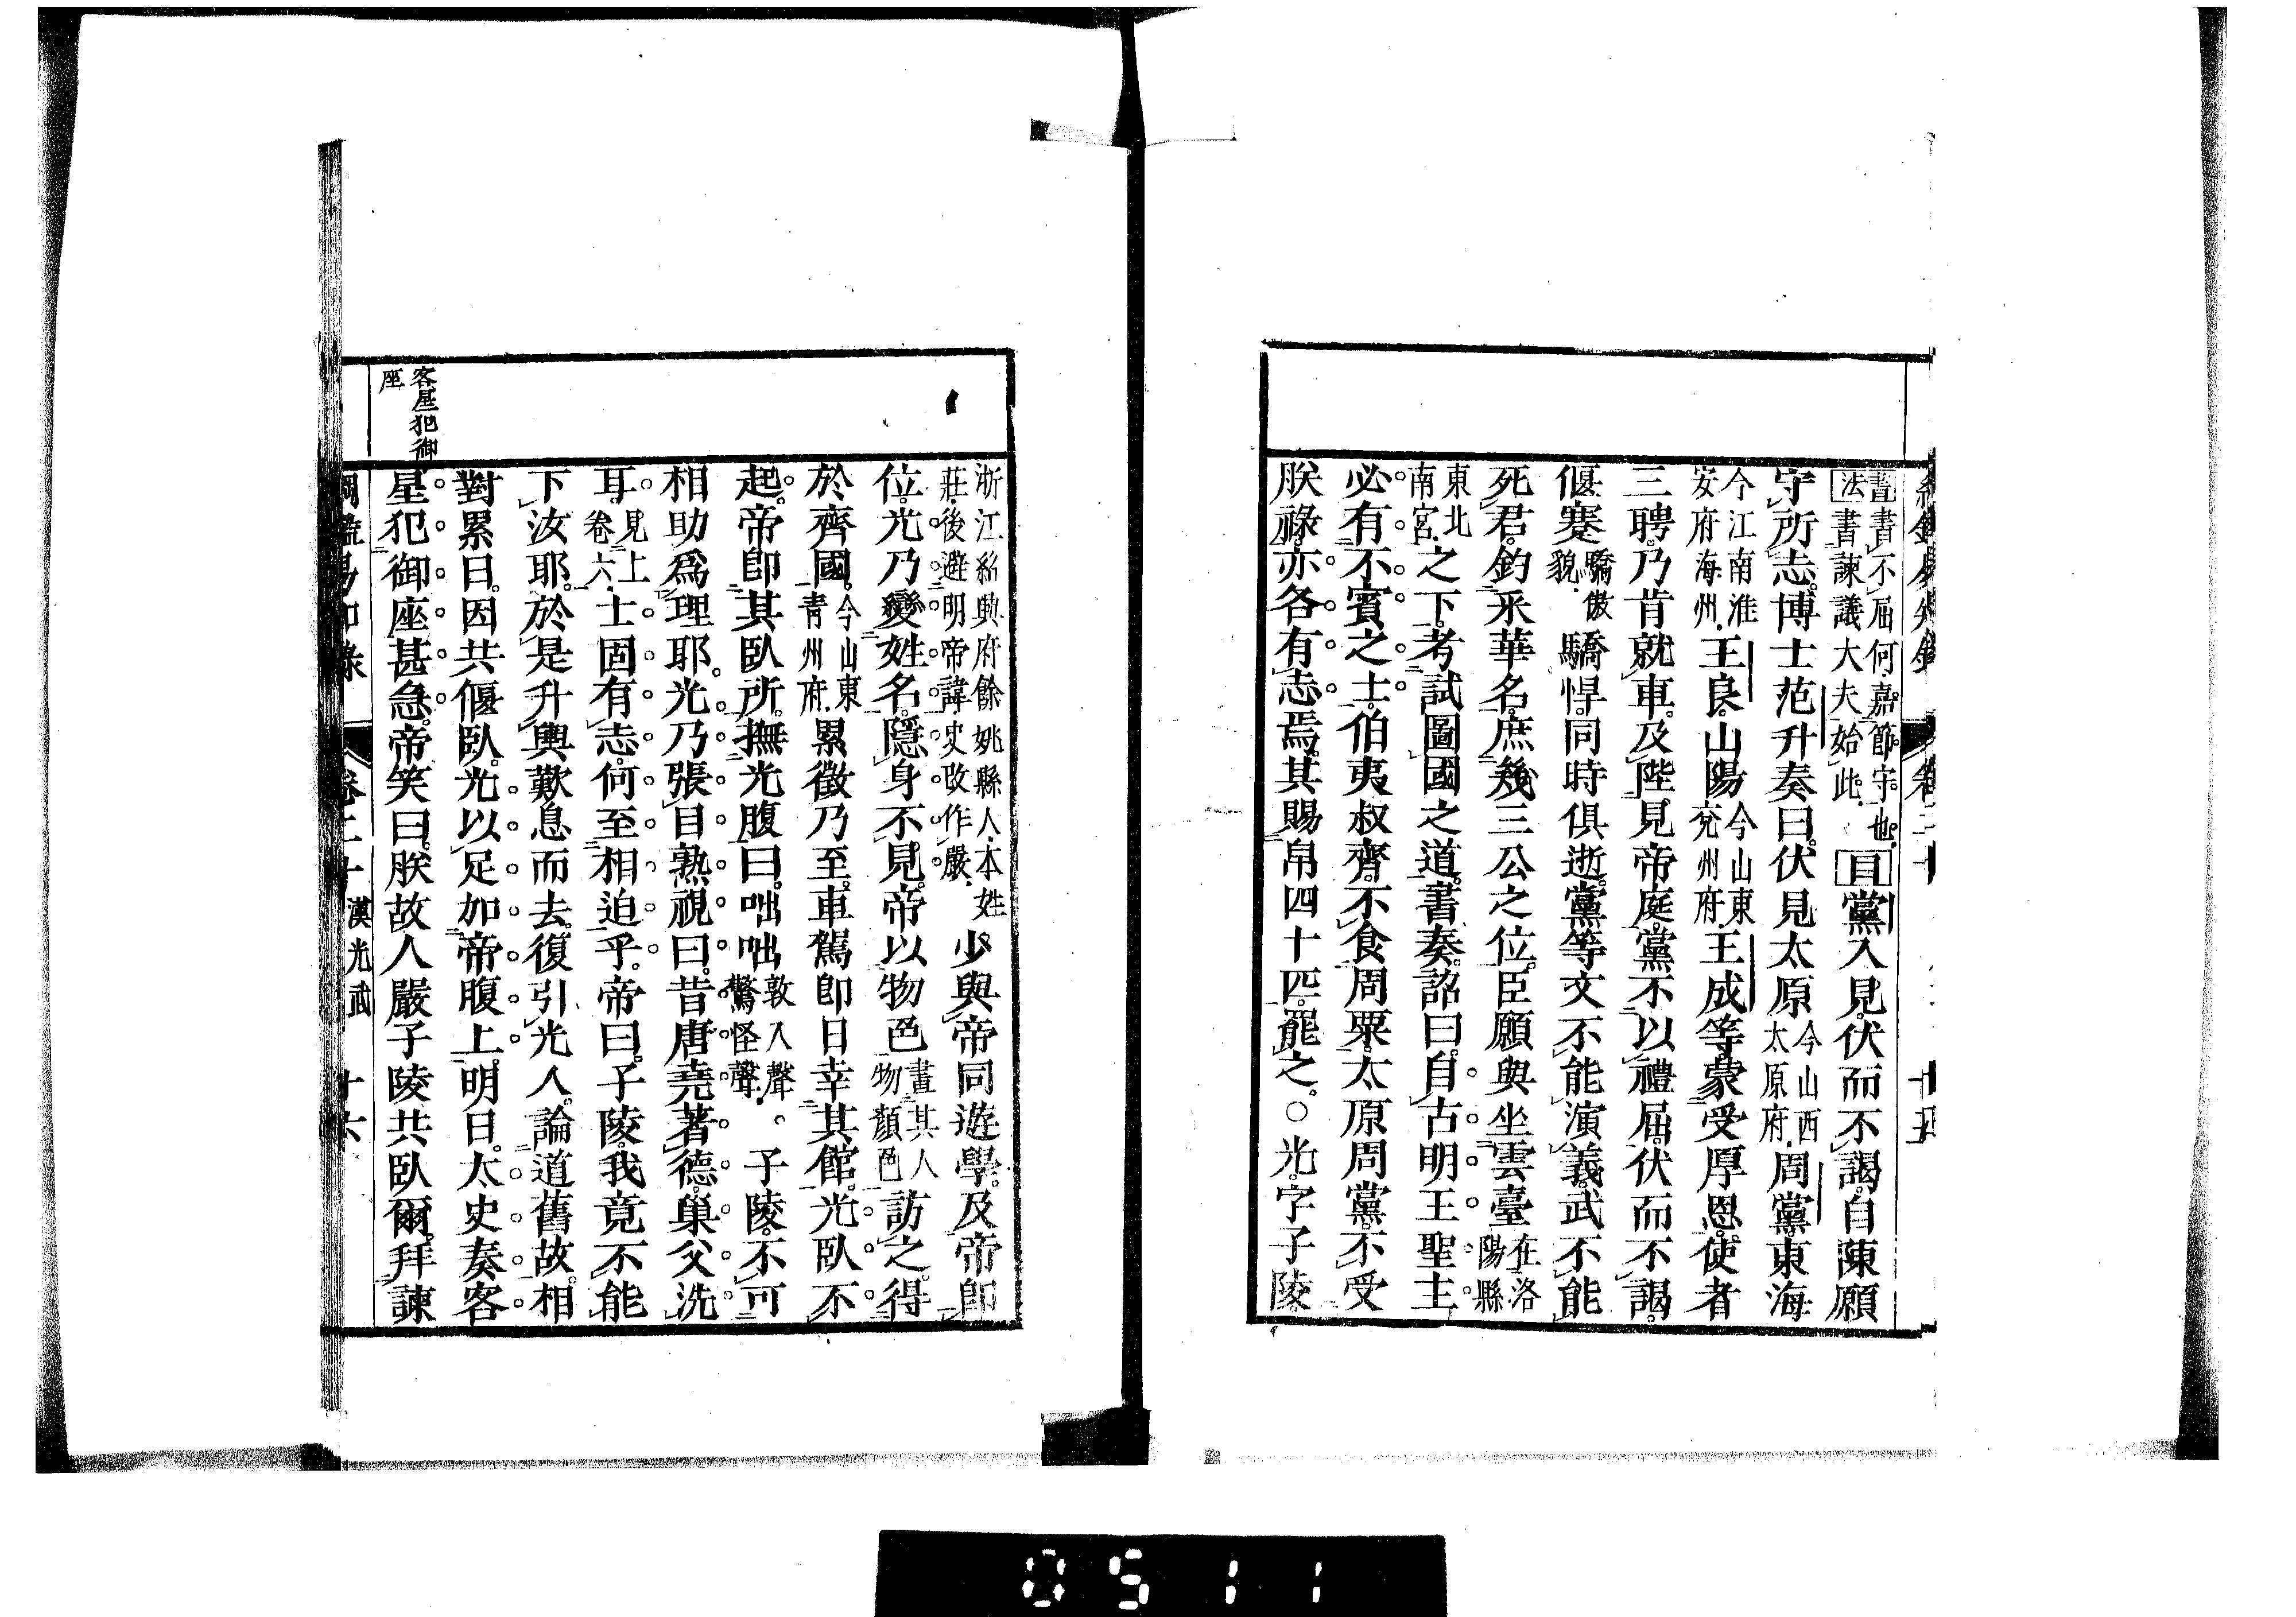 書書不屈何嘉節守也
法書諫議大夫始此
目黨入見伏而不謁自陳願
守所志博士范升奏曰伏見太原今山西太原府周黨東海
今江南淮安府海州王良山陽今山東兗州府王成等蒙受厚恩使者
三聘乃肯就車及陛見帝庭黨不以禮屈伏而不謁
偃蹇驕傲貌驕悍同時俱逝黨等文不能演義武不能
死君釣采華名庶幾三公之位臣願與坐雲臺在洛陽縣
東北南宮之下考試圖國之道書奏詔曰自古明王聖主
必有不賓之士伯夷叔齊不食周粟太原周黨不受
朕祿亦各有志焉其賜帛四十匹罷之○光字子陵
浙江紹興府餘姚縣人本姓莊後避明帝諱史改作嚴少與帝同遊學及帝卽
位光乃變姓名隱身不見帝以物色畫其人物顏色訪之得
於齊國今山東青州府累徵乃至車駕卽日幸其館光臥不
起帝卽其臥所撫光腹曰咄咄敦入聲驚怪聲子陵不可
相助爲理耶光乃張目熟視曰昔唐堯著德巢父洗
耳見上卷六士固有志何至相迫乎帝曰子陵我竟不能
下汝耶於是升輿歎息而去復引光入論道舊故相
對累日因共偃臥光以足加帝腹上明日太史奏客
客星犯御座
星犯御座甚急帝笑曰朕故人嚴子陵共臥爾拜諫
綱鑑易知錄 卷二十 漢光武 十六
0511